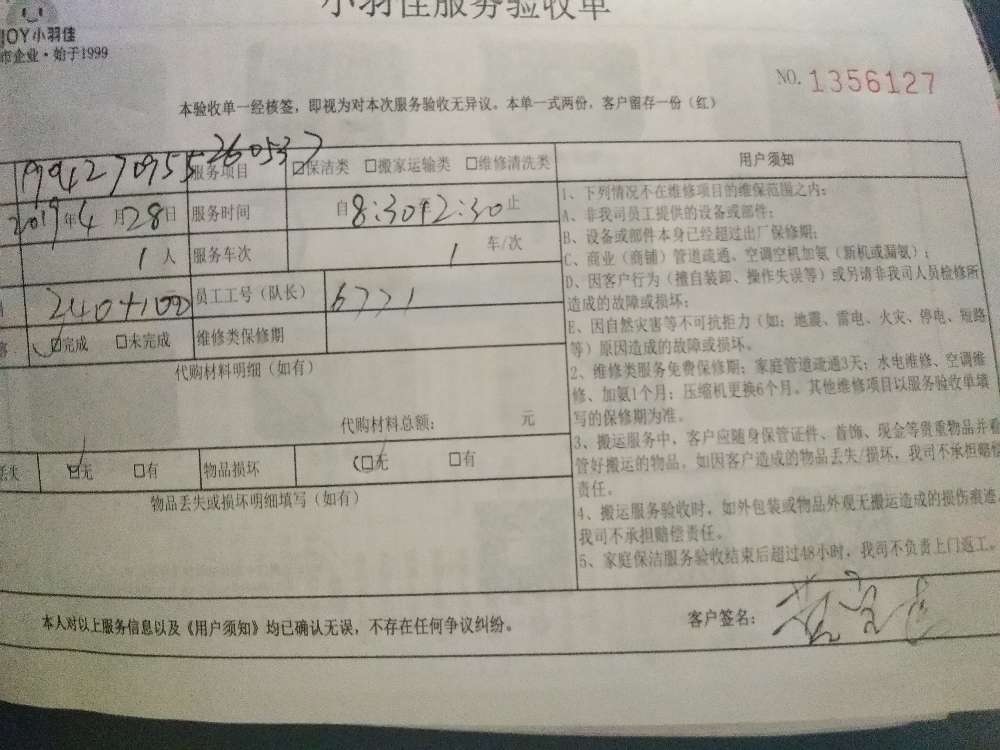 小羽佳服务验收单
JOY小羽佳
市企业·始于1999
NO. 1356127
本验收单一经核签，即视为对本次服务验收无异议。本单一式两份，客户留存一份（红）
服务项目 保洁类 搬家运输类 维修清洗类
2019年4月28日 服务时间 自8:30 12:30止
1人 服务车次 1 车/次
240+100 员工工号（队长） 6771
完成 未完成 维修类保修期
代购材料明细（如有）
代购材料总额： 元
丢失 无 有 物品损坏 无 有
物品丢失或损坏明细填写（如有）
用户须知
1、下列情况不在维修项目的维保范围之内：
A、非我司员工提供的设备或部件；
B、设备或部件本身已经超过出厂保修期；
C、商业（商铺）管道疏通、空调空机加氨（新机或漏氨）；
D、因客户行为（擅自装卸、操作失误等）或另请非我司人员检修所
造成的故障或损坏；
E、因自然灾害等不可抗拒力（如：地震、雷电、火灾、停电、短路
等）原因造成的故障或损坏。
2、维修类服务免费保修期：家庭管道疏通3天；水电维修、空调维
修、加氨1个月；压缩机更换6个月。其他维修项目以服务验收单填
写的保修期为准。
3、搬运服务中，客户应随身保管证件、首饰、现金等贵重物品并看
管好搬运的物品，如因客户造成的物品丢失/损坏，我司不承担赔偿
责任。
4、搬运服务验收时，如外包装或物品外观无搬运造成的损伤痕迹
我司不承担赔偿责任。
5、家庭保洁服务验收结束后超过48小时，我司不负责上门返工。
本人对以上服务信息以及《用户须知》均已确认无误，不存在任何争议纠纷。
客户签名：